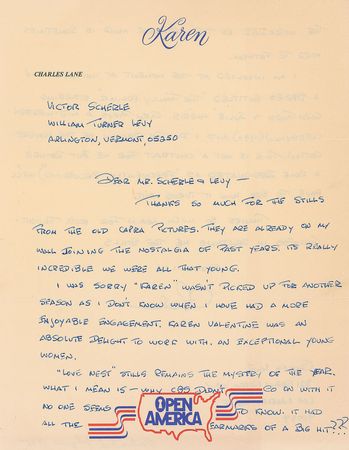 Karen
CHARLES LANE
VICTOR SCHERLE
WILLIAM TURNER LEVY
ARLINGTON, VERMONT, 05250
DEAR MR. SCHERLE & LEVY —
THANKS SO MUCH FOR THE STILLS
FROM THE OLD CAPRA PICTURES. THEY ARE ALREADY ON MY
WALL JOINING THE NOSTALGIA OF PAST YEARS. ITS REALLY
INCREDIBLE WE WERE ALL THAT YOUNG.
I WAS SORRY "KAREN" WASN'T PICKED UP FOR ANOTHER
SEASON AS I DON'T KNOW WHEN I HAVE HAD A MORE
ENJOYABLE ENGAGEMENT. KAREN VALENTINE WAS AN
ABSOLUTE DELIGHT TO WORK WITH. AN EXCEPTIONAL YOUNG
WOMEN.
"LOVE NEST" STILLS REMAINS THE MYSTERY OF THE YEAR.
WHAT I MEAN IS — WHY CBS DIDN'T GO ON WITH IT
NO ONE SEEMS TO KNOW. IT HAD
ALL THE EARMARKS OF A BIG HIT??
OPEN
AMERICA